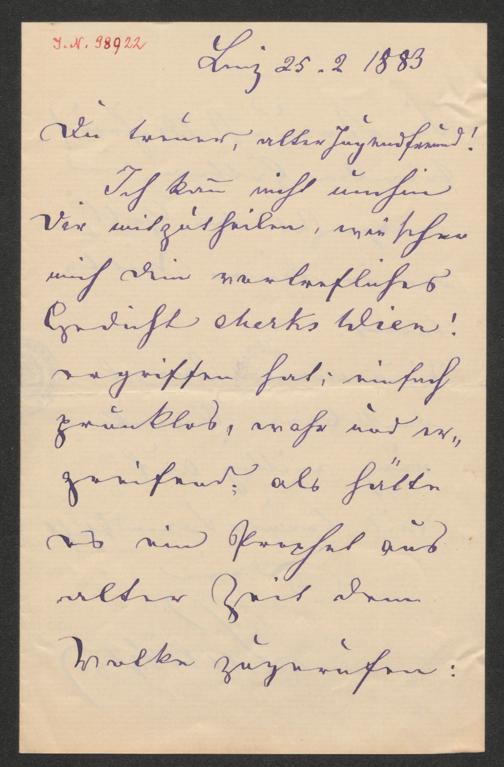 I.N. 98922
Linz 25. 2 1883
Du treuer, alter Jugendfreund!
Ich kañ nicht umhin
Dir mitzutheilen, wie sehr
mich Dein vortrefliches
Gedicht Merks Wien!
ergriffen hat; einfach
prunklos, wahr und er„
greifend; als hätte
es ein Prophet aus
alter Zeit dem
Volke zugerufen: